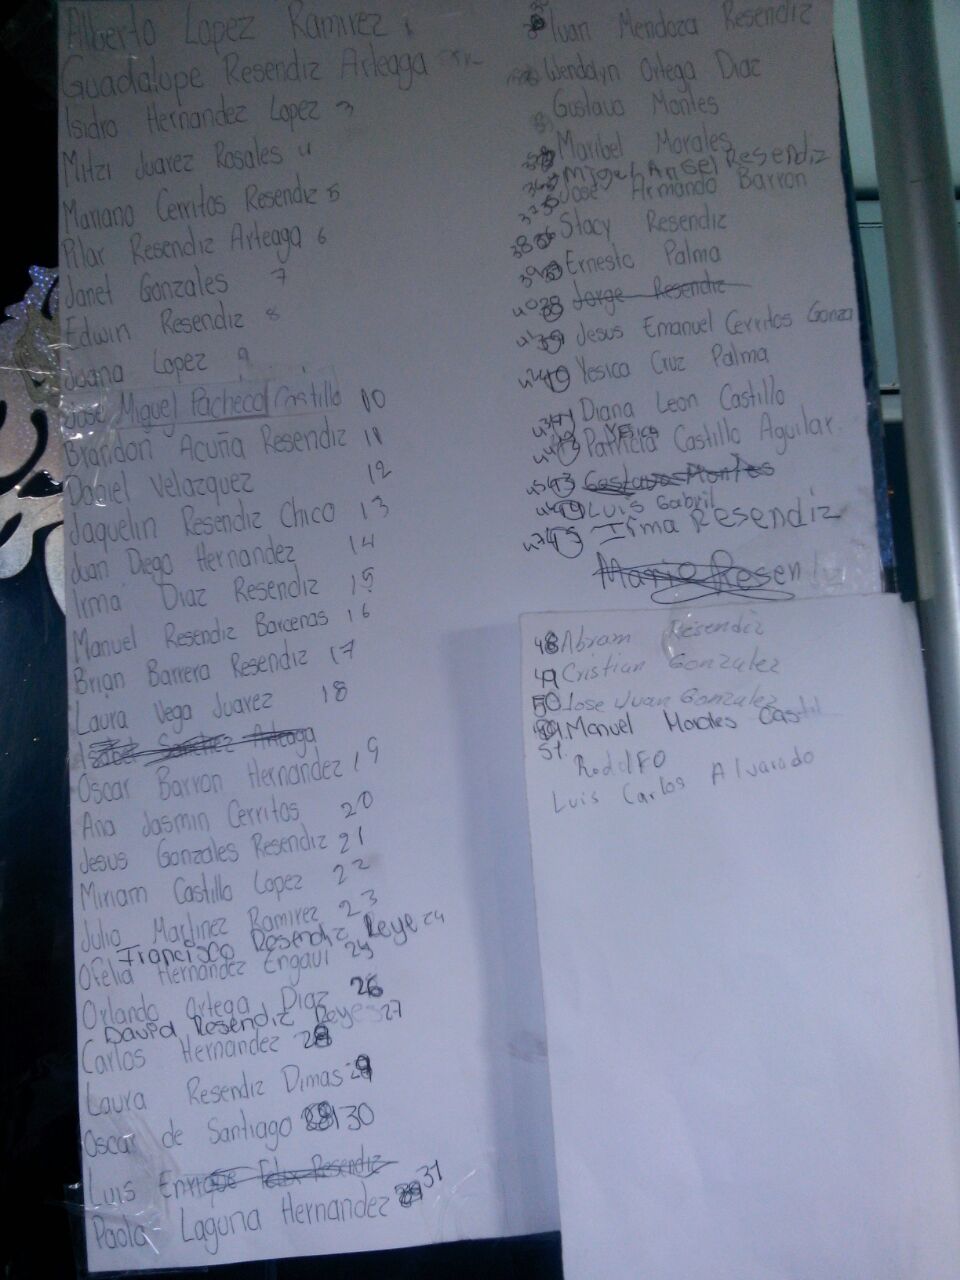 Alberto Lopez Ramirez 1
Guadalupe Resendiz Arteaga
Isidro Hernandez Lopez 3
Mitzi Juarez Rosales 4
Mariano Cerritos Resendiz 5
Pilar Resendiz Arteaga 6
Janet Gonzales 7
Edwin Resendiz 8
Juana Lopez 9
Jose Miguel Pacheco Castillo 10
Brandon Acuña Resendiz 11
Daniel Velazquez 12
Jaquelin Resendiz Chico 13
Juan Diego Hernandez 14
Irma Diaz Resendiz 15
Manuel Resendiz Barcenas 16
Brian Barrera Resendiz 17
Laura Vega Juarez 18
Sanchez Arteaga
Oscar Barron Hernandez 19
Ana Jasmin Cerritos 20
Jesus Gonzales Resendiz 21
Miriam Castillo Lopez 22
Julio Martinez Ramirez 23
Francisco Resendiz Reye 24
Ofelia Hernandez 25
Orlando Ortega Diaz 26
David Resendiz Reyes 27
Carlos Hernandez 28
Laura Resendiz Dimas 29
Oscar de Santiago 30
Luis Enrique Felix Resendiz
Paola Laguna Hernandez 31
Ivan Mendoza Resendiz
Wendolyn Ortega Diaz
Gustavo Montes
Maribel Morales
Miguel Angel Resendiz
Jose Armando Barron
38 Stacy Resendiz
39 Ernesto Palma
Jorge Resendiz
Jesus Emanuel Cerritos Gonza
Yesica Cruz Palma
Diana Leon Castillo
Yesica
Patricia Castillo Aguilar
Gustavo Montes
Luis Gabril
Irma Resendiz
Mario Resen
48 Abram Resendiz
49 Cristian Gonzalez
50 Jose Juan Gonzalez
Manuel Morales Castil
51.
Rodolfo
Luis Carlos Alvarado